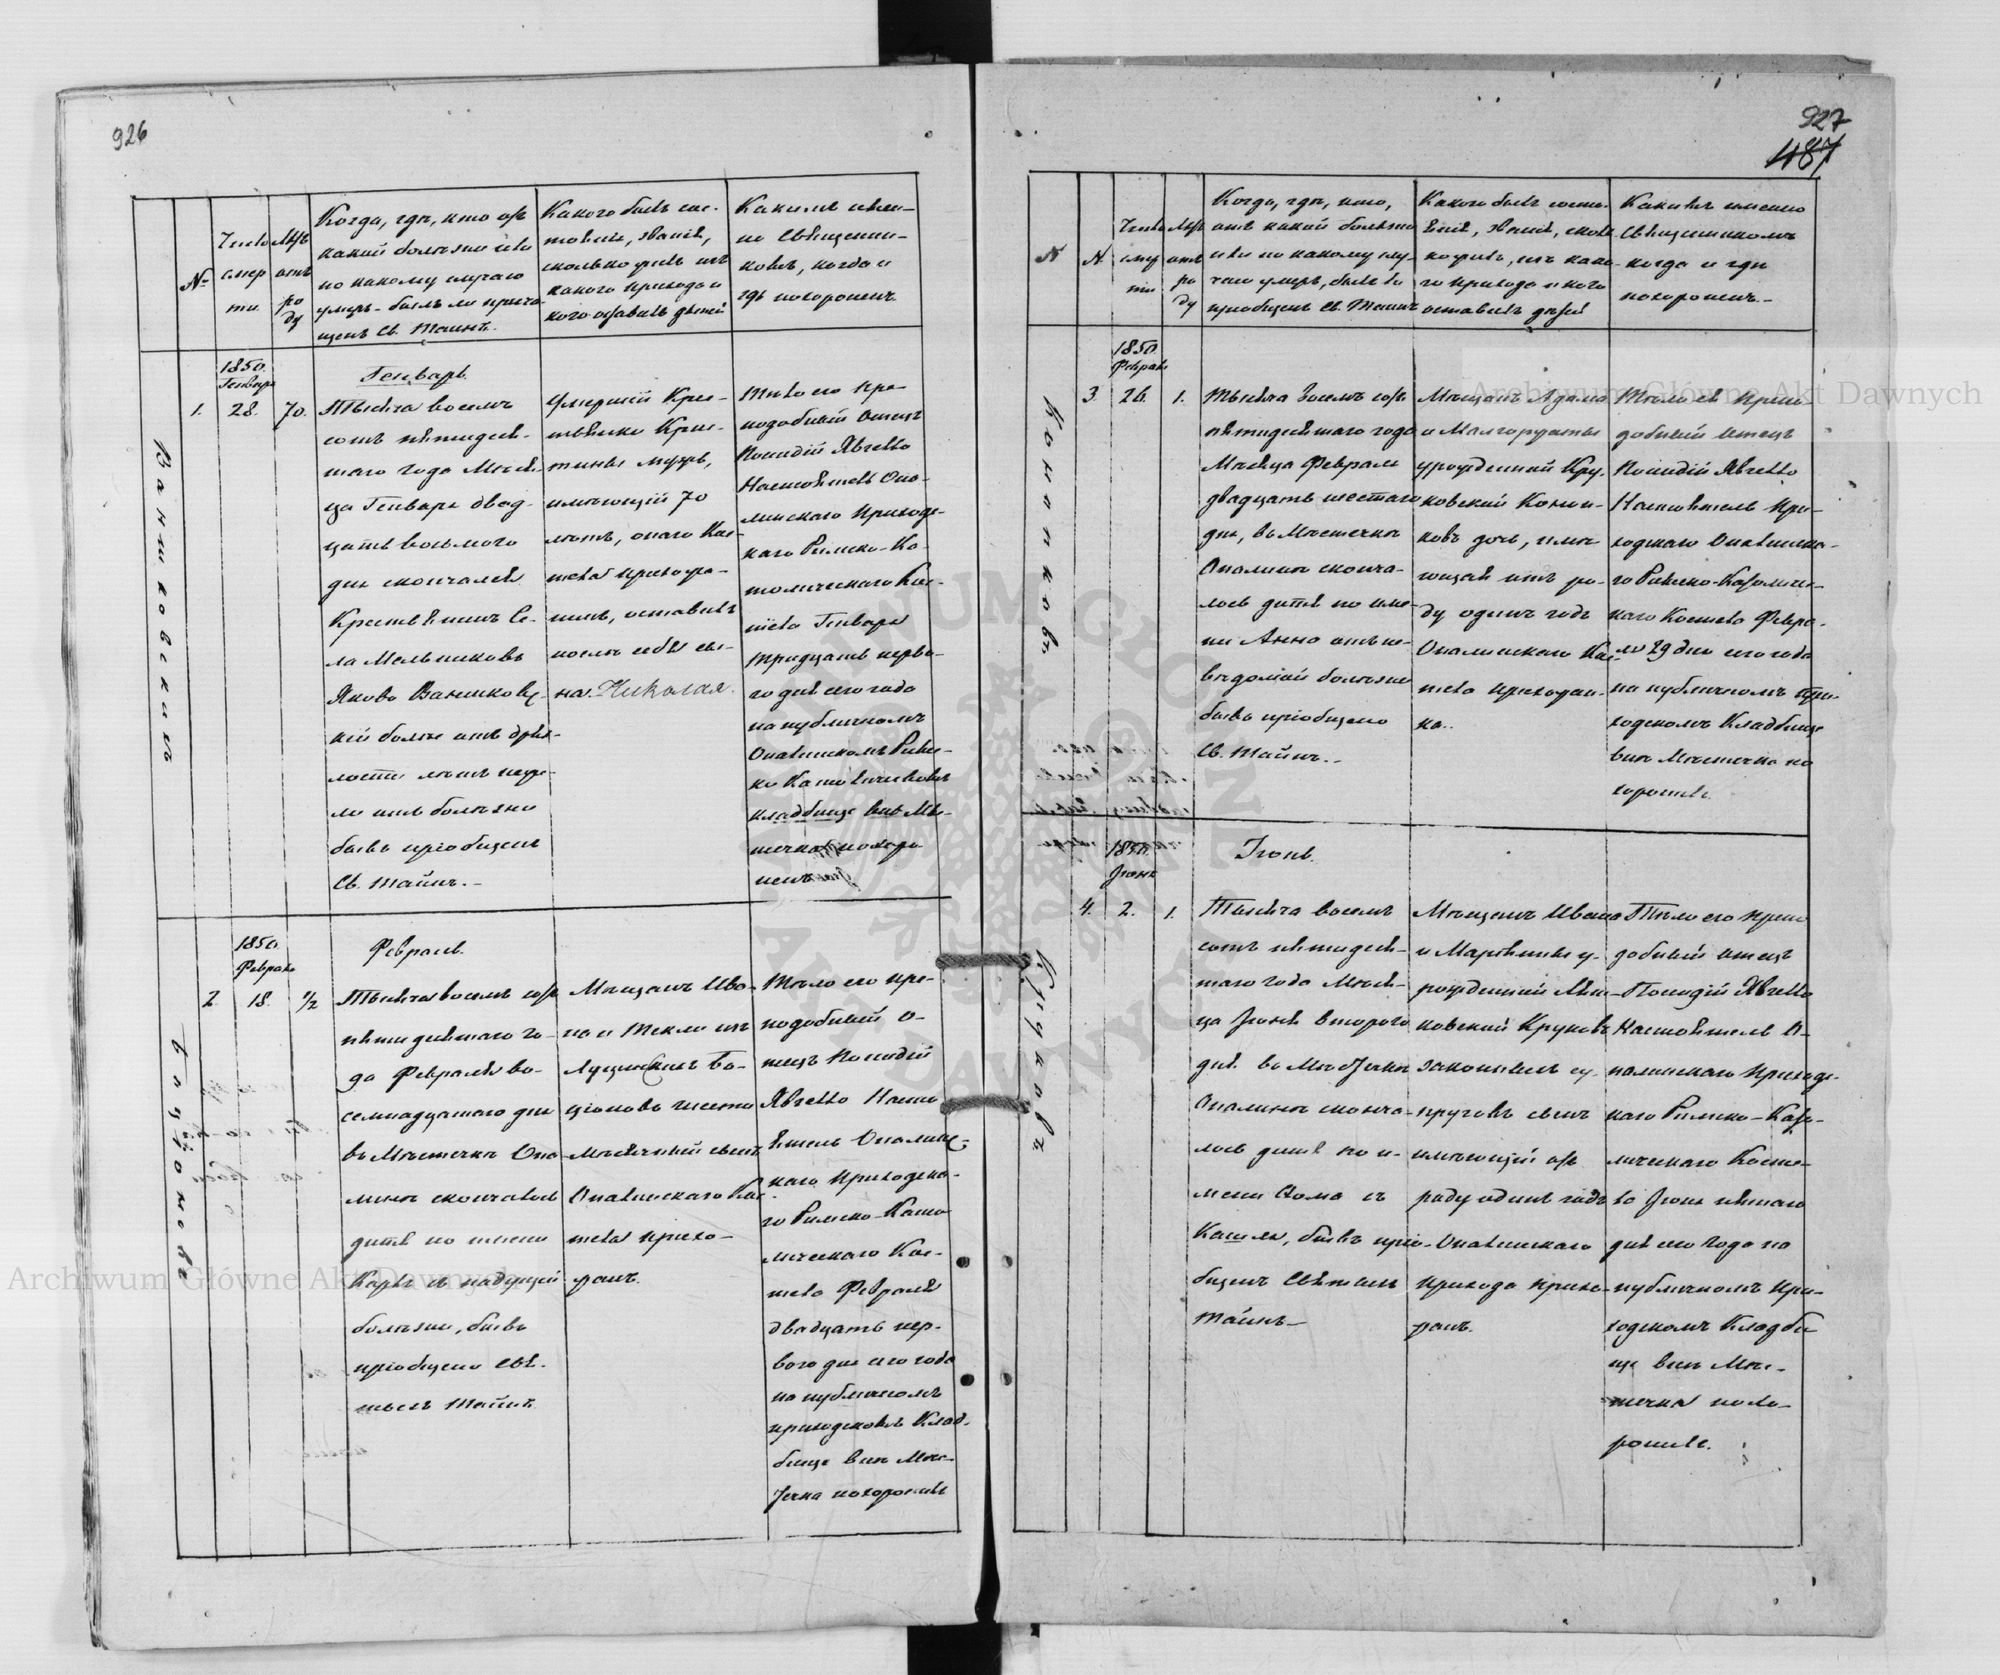 926
№
Число
смер
ти.
Лѣтъ
отъ
ро
ду
Когда, гдѣ, кто отъ
какой болѣзни или
по какому случаю
умеръ. былъ ли прича-
щенъ Св. Таинъ.
Какого былъ сос-
тоянія, званія,
сколько руб. изъ
какого прихода и
кого оставилъ дѣтей
Какимъ имен-
но Священни-
комъ, когда и
гдѣ похороненъ
Ванчиковскій
1.
1850.
Генваря
28.
70.
Генварь.
Тысяча восемь
сотъ пятидеся-
таго года Мѣся-
ца Генваря двад-
цать восьмого
дня скончался
Крестьянинъ Се-
ла Мельниковъ
Яковъ Ванчиковс-
кій болѣе отъ дрях-
лости лѣтъ неже-
ли отъ болѣзни
бывъ пріобщенъ
Св. Тайнъ.-
Умершій Крес-
тьянки Крис-
тины мужъ,
имѣющій 70
лѣтъ, онаго Кос-
тела прихожа-
нинъ, оставилъ
послѣ себя сы-
на Николая.
Тѣло его Пре-
подобный Отецъ
Настоятель Опа-
линскаго Приходс-
каго Римско-Ка-
толическаго Кос-
тела Генваря
тридцать перва-
го дня сего года
на публичномъ
Опалинскомъ Римс-
ко Католическомъ
кладбище внѣ Мѣс-
течка похоро-
ненъ
2.
1850.
Февраля
18.
1/2
Февраль.
Тысяча восемь сотъ
пятидесятаго го-
да Февраля во-
семнадцатаго дня
въ Мѣстечкѣ Опа-
линѣ скончалось
дитя по имени
Карлъ съ падущей
болѣзни, бывъ
пріобщено Свя-
тыхъ Тайнъ.
Мѣщанъ Ива-
на и Теклы изъ
мѣсячный сынъ,
Опалинскаго Кос-
тела прихо-
жанъ.
Тѣло его Пре-
подобный О-
тецъ
Насто-
ятель Опалинс-
каго Приходска-
го Римско-Като-
лическаго Кос-
тела Февраля
двадцать пер-
вого дня сего года
на публичномъ
приходскомъ Клад-
бище внѣ Мѣс-
течка похоронилъ
927
487
№
№
Число
смер
ти
Лѣтъ
отъ
ро
ду
Когда, гдѣ, кто,
отъ какой болѣзни
или по какому слу-
чаю умеръ, былъ ли
пріобщенъ Св. Таинъ
Какого былъ состо-
янія, званія, сколь
ко руб., изъ како-
го прихода и кого
оставилъ дѣтей
Какимъ именно
Священникомъ
когда и гдѣ
похороненъ.-
Конопковъ
3.
1850.
Февраля
26.
1.
Тысяча восемь сотъ
пятидесятаго года
Мѣсяца Февраля
двадцать шестаго
дня, въ Мѣстечкѣ
Опалинѣ сконча-
лось дитя по име-
ни Анна отъ не-
вѣдомой болѣзни
бывъ пріобщено
Св. Тайнъ.-
Мѣщанъ Адама
и Малгоржаты
урожденной Кру-
ковской Коноп-
ковъ дочь, имѣ-
ющая отъ ро-
ду одинъ годъ
Опалинскаго Кос-
тела прихожан-
ка.
Тѣло ея Препо-
добный Отецъ
Настоятель При-
ходскаго Опалинска-
го Римско-Католичес-
каго Костела Февра-
ля 29 дня сего года
на публичномъ При-
ходскомъ Кладбище
внѣ Мѣстечка по-
хоронилъ.
Круковъ
4.
1850.
Іюня
2.
1.
Іюнь.
Тысяча восемь
сотъ пятидеся-
таго года Мѣся-
ца Іюня второго
дня въ Мѣстечкѣ
Опалинѣ сконча-
лось дитя по и-
мени Ѳома съ
Кашля, бывъ прі-
общенъ Святыхъ
Тайнъ-
Мѣщанъ Ивана
и Марьянны у-
рожденной Лин-
ковской Круковъ
законныхъ су-
пруговъ сынъ
имѣющій отъ
роду одинъ годъ
Опалинскаго
прихода прихо-
жанъ.
Тѣло его Препо-
добный Отецъ
Настоятель О-
палинскаго Приходс-
каго Римско-Като-
лическаго Косте-
ла Іюня пятаго
дня сего года на
публичномъ При-
ходскомъ Кладби-
ще внѣ Мѣс-
течка похо-
ронилъ.
Archiwum Główne Akt Dawnych
Archiwum Główne Akt Dawnych
ARCHIWUM GŁÓWNE AKT DAWNYCH